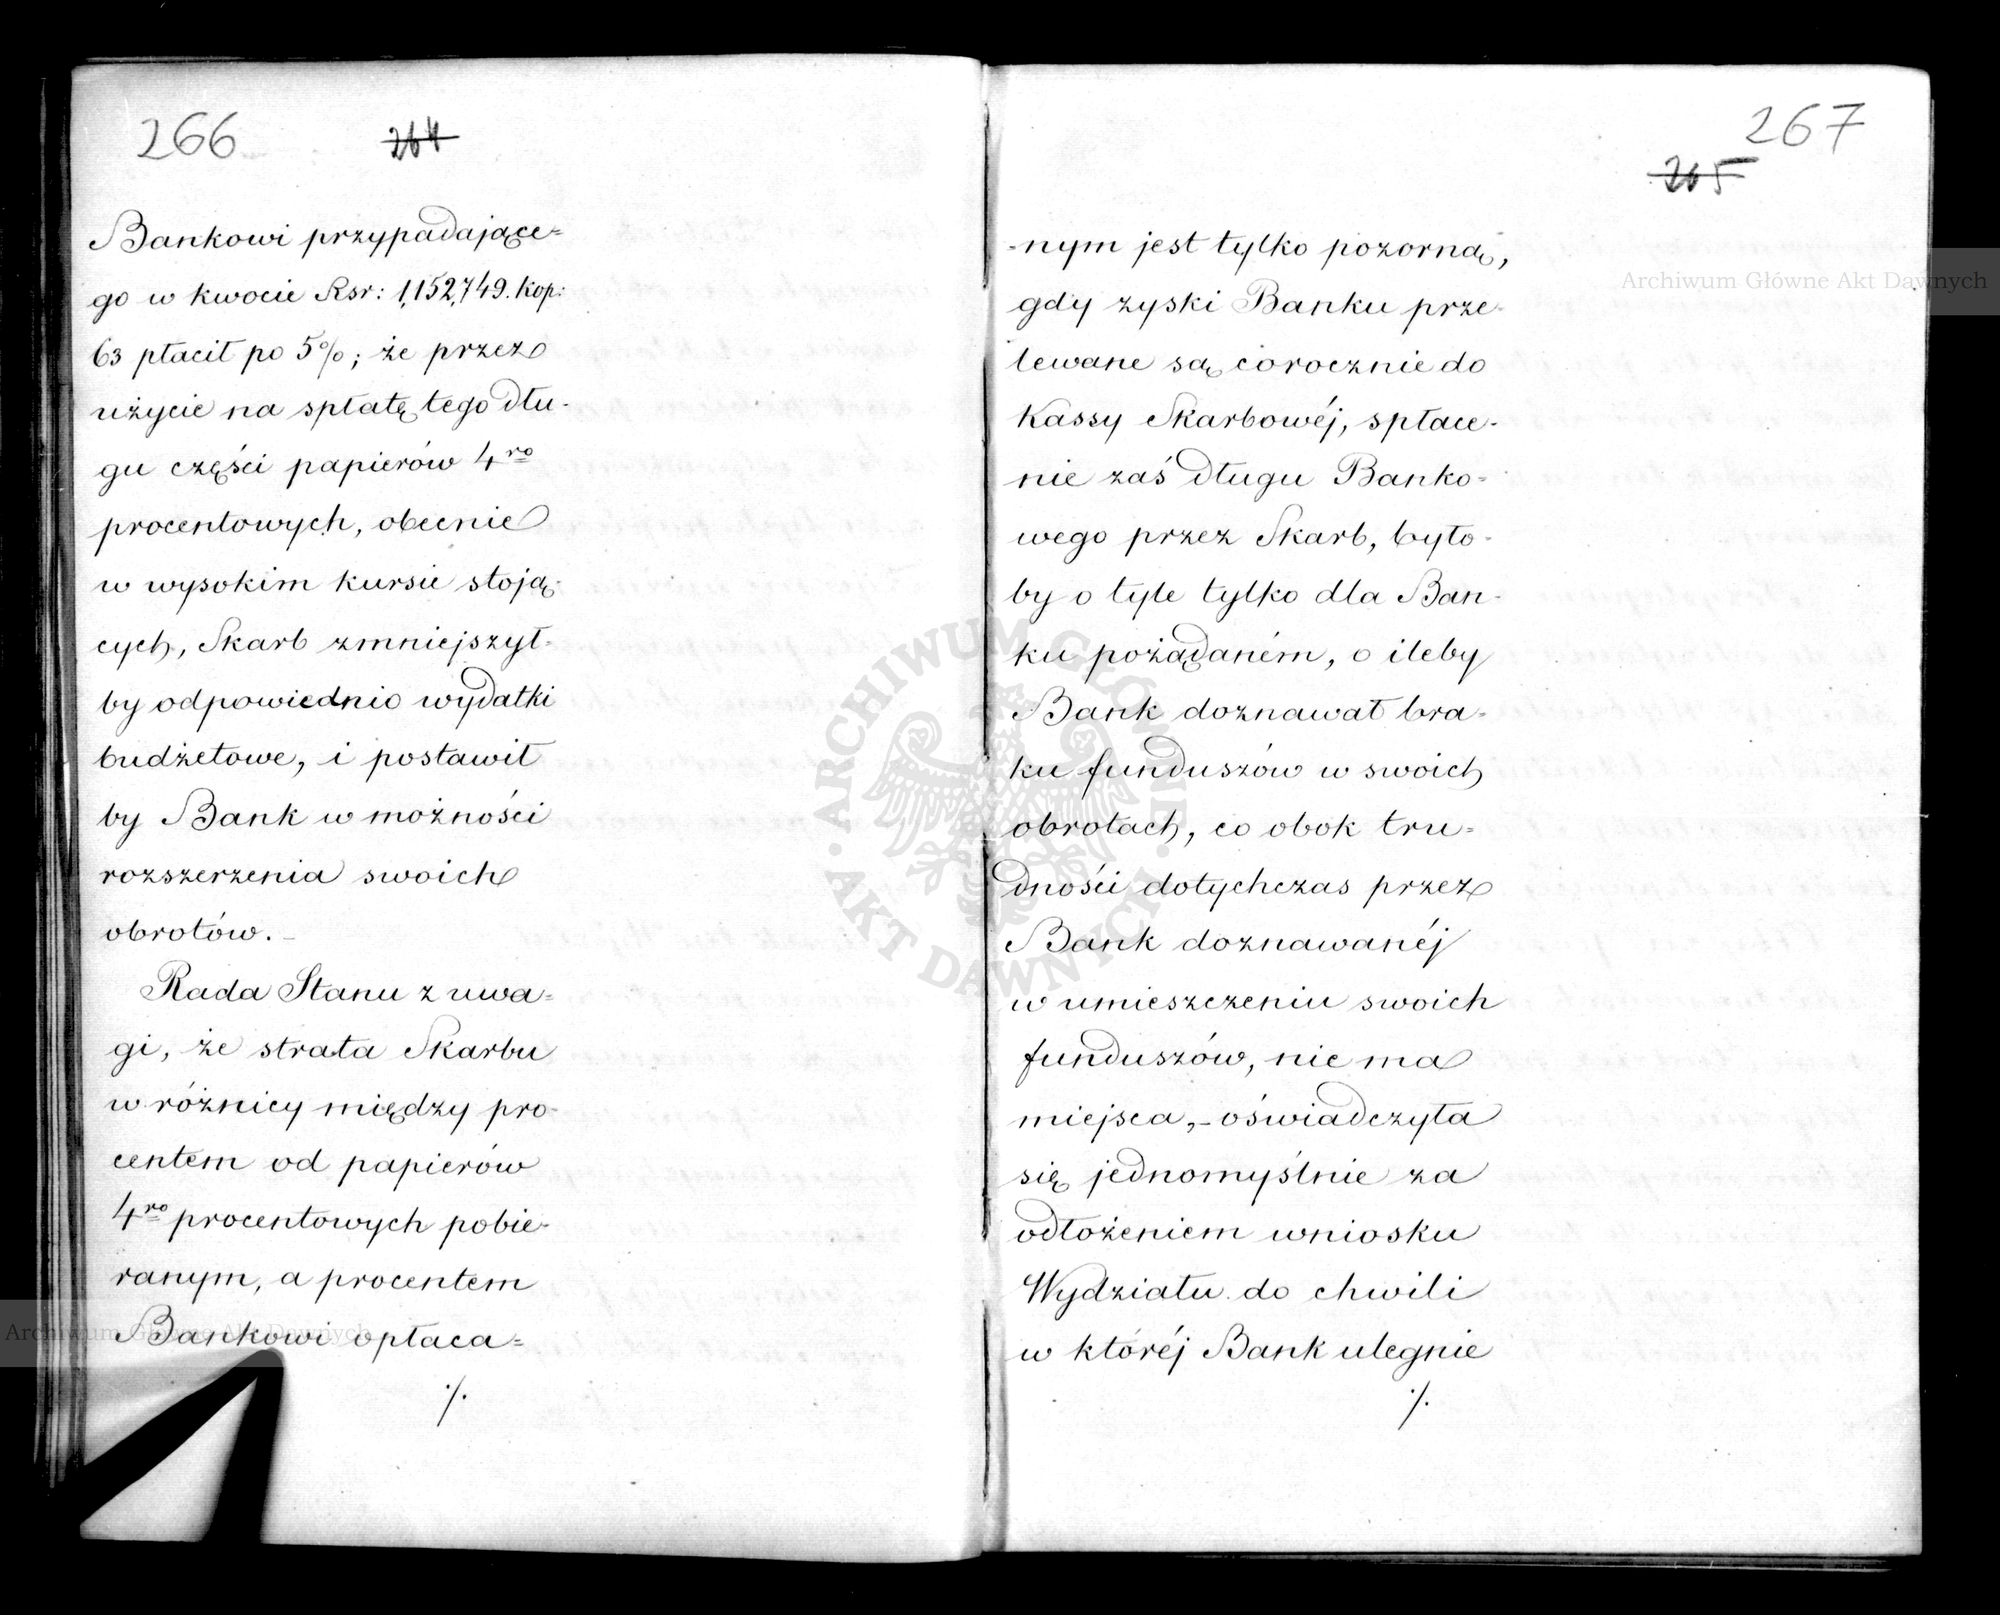 266
264
Bankowi przypadające=
go w kwocie Rsr: 1,152,749. kop:
63 płacił po 5%; że przez
użycie na spłatę tego dłu-
gu części papierów 4ro
procentowych, obecnie
w wysokim kursie stoją-
cych, Skarb zmniejszył-
by odpowiednio wydatki
budżetowe, i postawił
by Bank w możności
rozszerzenia swoich
obrotów. _
Rada Stanu z uwa=
gi, że strata Skarbu
w różnicy między pro-
centem od papierów
4ro procentowych pobie-
ranym, a procentem
Bankowi opłaca=
./.
267
265
-nym jest tylko pozorną,
gdy zyski Banku prze-
lewane są corocznie do
Kassy Skarbowéj, spłace-
nie zaś długu Banko-
wego przez Skarb, było-
by o tyle tylko dla Ban-
ku pożądaném, o ileby
Bank doznawał bra-
ku funduszów w swoich
obrotach, co obok tru=
dności dotychczas przez
Bank doznawanéj
w umieszczeniu swoich
funduszów, nie ma
miejsca,- oświadczyła
się jednomyślnie za
odłożeniem wniosku
Wydziału do chwili
w któréj Bank ulegnie
./.
Archiwum Główne Akt Dawnych
Archiwum Główne Akt Dawnych
ARCHIWUM GŁÓWNE · AKT DAWNYCH ·